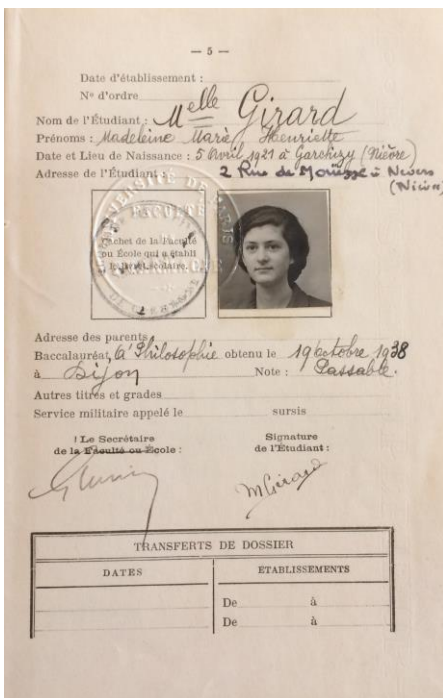 — 5 —
Date d'établissement :
N° d'ordre
Nom de l'Étudiant : Melle Girard
Prénoms : Madeleine Marie Henriette
Date et Lieu de Naissance : 5 Avril 1921 à Garchizy (Nièvre)
Adresse de l'Étudiant : 2 Rue de Mouësse à Nevers
(Nièvre)
UNIVERSITÉ DE PARIS
FACULTÉ
Cachet de la Faculté
ou École qui a établi
le livret scolaire.
Adresse des parents
Baccalauréat, à Philosophie obtenu le 19 octobre 1938
à Dijon Note : Passable.
Autres titres et grades
Service militaire appelé le sursis
Le Secrétaire
de la Faculté ou École :
Signature
de l'Étudiant :
MGirard
TRANSFERTS DE DOSSIER
DATES ÉTABLISSEMENTS
De à
De à